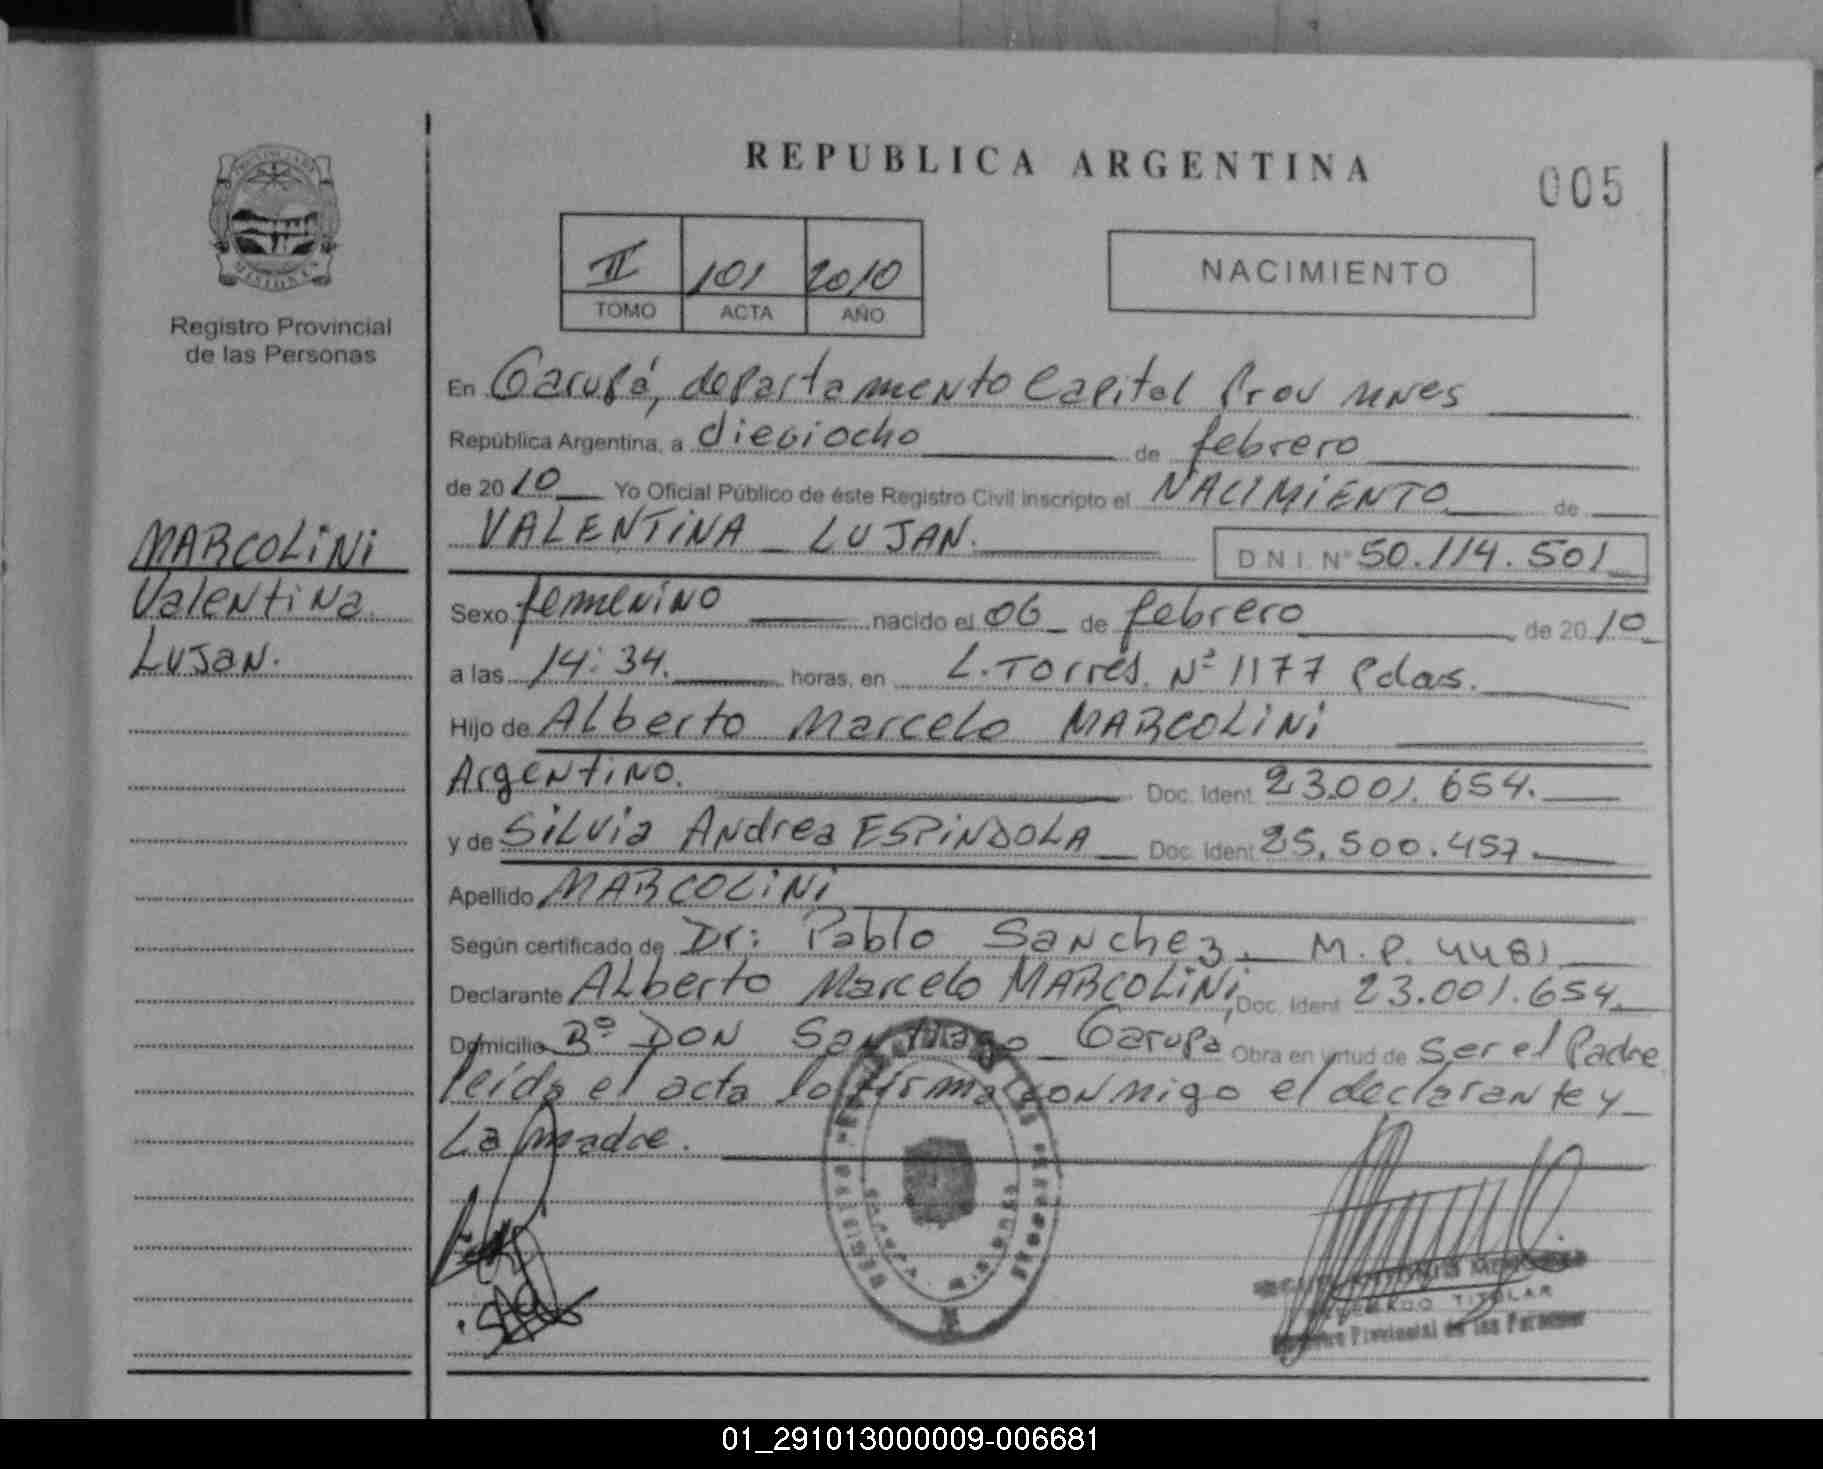 REPUBLICA ARGENTINA
005
PROVINCIA DE
MISIONES
Registro Provincial
de las Personas
II 101 2010
TOMO ACTA AÑO
NACIMIENTO
MARCOLINI
Valentina
Lujan.
En Garupá, departamento Capital Prov Mnes
República Argentina, a dieciocho de febrero
de 2010 Yo Oficial Público de éste Registro Civil inscripto el NACIMIENTO de
VALENTINA LUJAN. D N I. N° 50.114.501
Sexo femenino nacido el 06 de febrero de 2010
a las 14:34. horas, en L. Torres. Nº 1177 Pdas.
Hijo de Alberto Marcelo MARCOLINI
Argentino. Doc. Ident. 23.001.654.
y de Silvia Andrea ESPINDOLA Doc. Ident. 25.500.457.
Apellido MARCOLINI
Según certificado de Dr: Pablo Sanchez M.P. 4481
Declarante Alberto Marcelo MARCOLINI, Doc. Ident. 23.001.654.
Domicilio Bº DON Santiago Garupá Obra en virtud de Ser el Padre
leída el acta lo firma conmigo el declarante y
La madre.
TITULAR
Provincial de las Personas
01_291013000009-006681